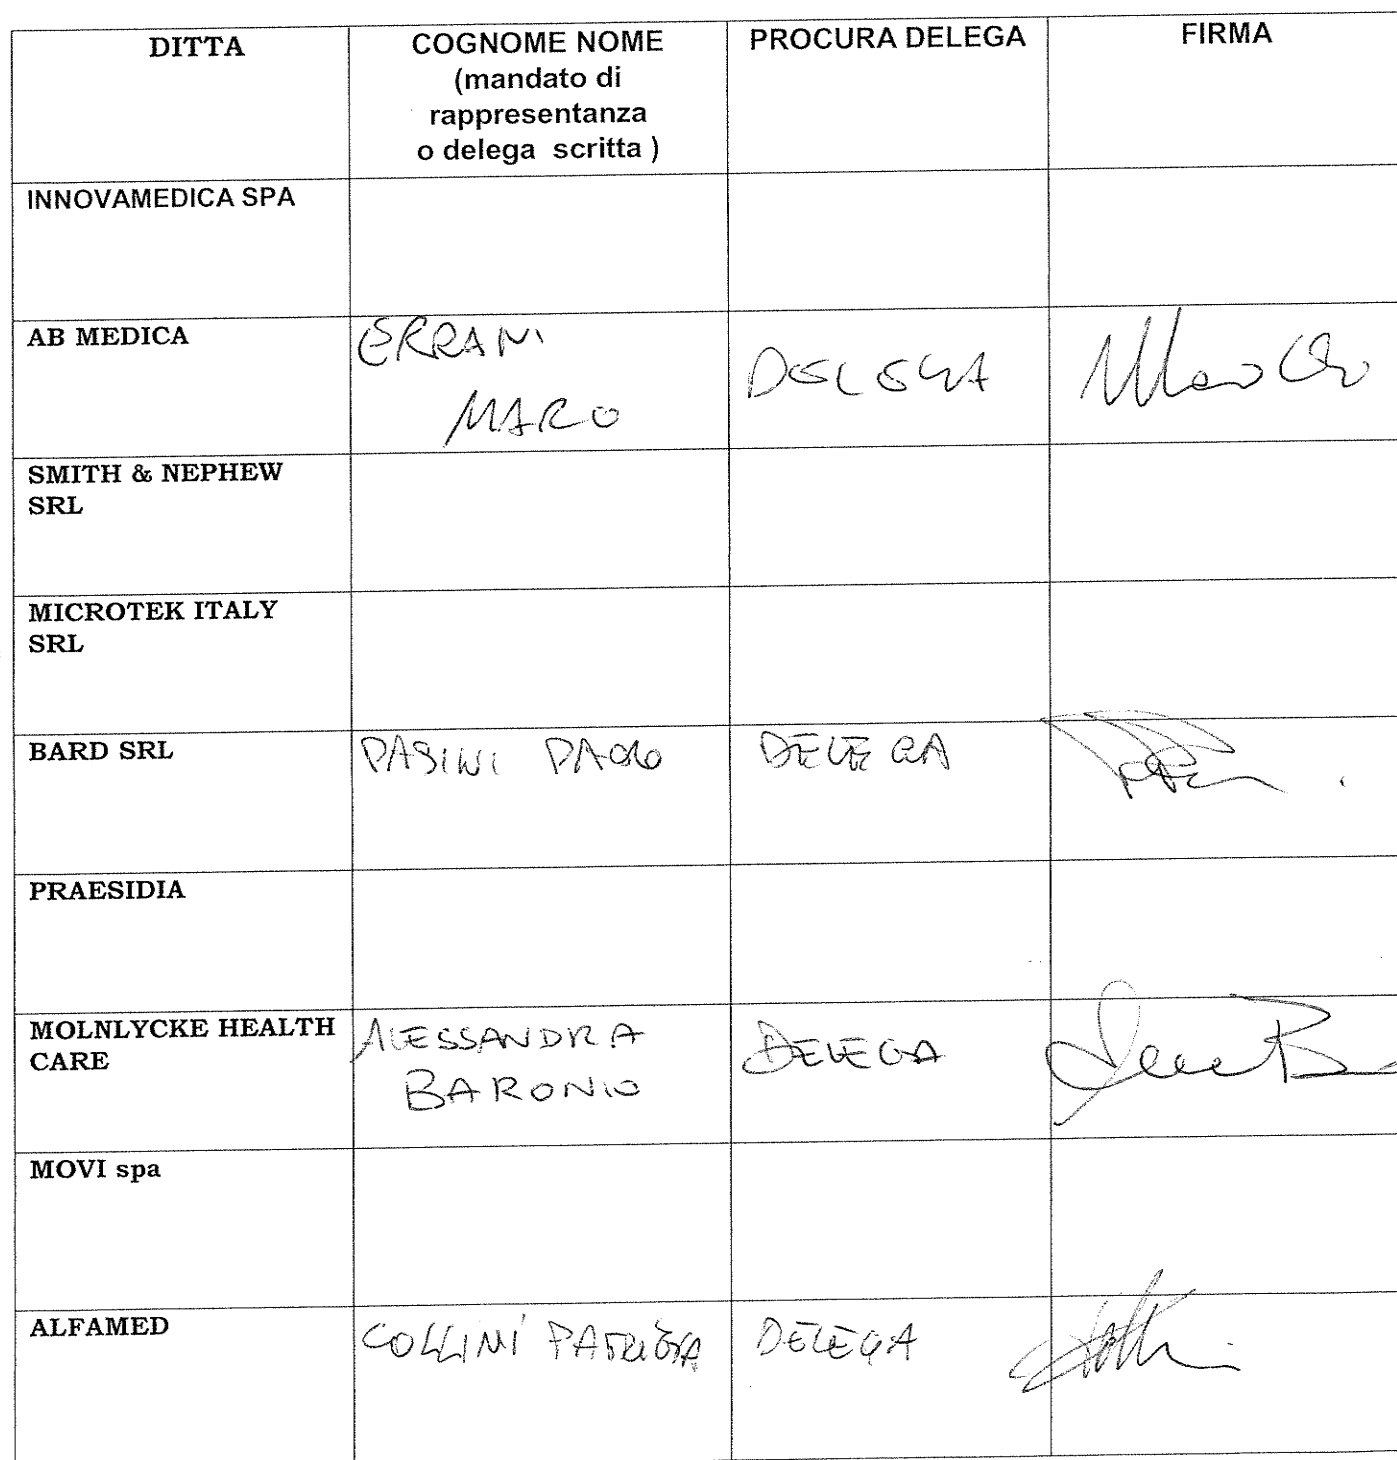 DITTA
COGNOME NOME
(mandato di
rappresentanza
o delega scritta )
PROCURA DELEGA
FIRMA
INNOVAMEDICA SPA
AB MEDICA
ERRANI
MARCO
DELEGA
SMITH & NEPHEW
SRL
MICROTEK ITALY
SRL
BARD SRL
PASINI PAOLO
DELEGA
PRAESIDIA
MOLNLYCKE HEALTH
CARE
ALESSANDRA
BARONIO
DELEGA
MOVI spa
ALFAMED
COLLINI PATRIZIA
DELEGA